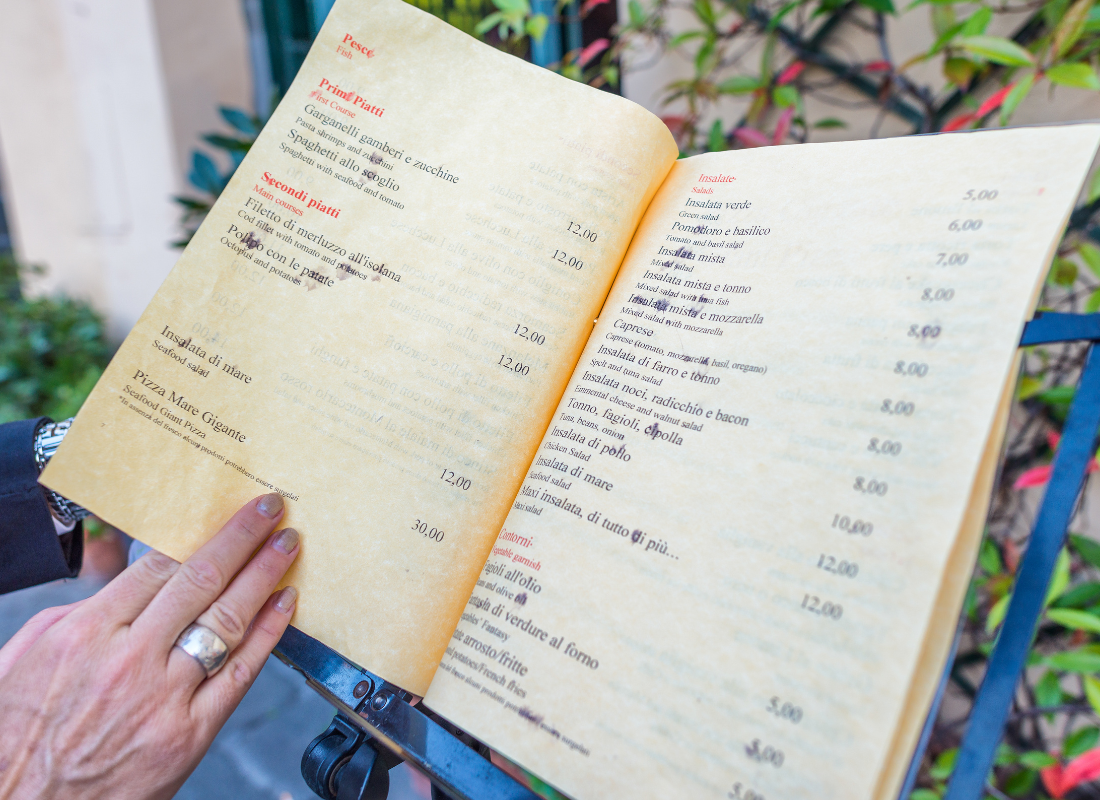 Pesce
Fish
Primi Piatti
First Course
Garganelli gamberi e zucchine 12,00
Pasta shrimps and zucchini
Spaghetti allo scoglio 12,00
Spaghetti with seafood and tomato
Secondi piatti
Main courses
Filetto di merluzzo all'isolana 12,00
Cod fillet with tomato and potatoes
Polipo con le patate 12,00
Octopus and potatoes
Insalata di mare 12,00
Seafood salad
Pizza Mare Gigante 30,00
Seafood Giant Pizza
*In assenza del fresco alcuni prodotti potrebbero essere surgelati
Insalate
Salads
Insalata verde 5,00
Green salad
Pomodoro e basilico 6,00
Tomato and basil salad
Insalata mista 7,00
Mixed salad
Insalata mista e tonno 8,00
Mixed salad with tuna fish
Insalata mista e mozzarella 8,00
Mixed salad with mozzarella
Caprese 8,00
Caprese (tomato, mozzarella, basil, oregano)
Insalata di farro e tonno 8,00
Spelt and tuna salad
Insalata noci, radicchio e bacon 8,00
Emmental cheese and walnut salad
Tonno, fagioli, cipolla 8,00
Tuna, beans, onion
Insalata di pollo 10,00
Chicken Salad
Insalata di mare 12,00
Seafood salad
Maxi insalata, di tutto di più... 12,00
Maxi salad
Contorni
Vegetable garnish
Fagioli all'olio 5,00
and olive oil
di verdure al forno 5,00
Fantasy
arrosto/fritte 5,00
potatoes/French fries
alcuni prodotti potrebbero essere surgelati